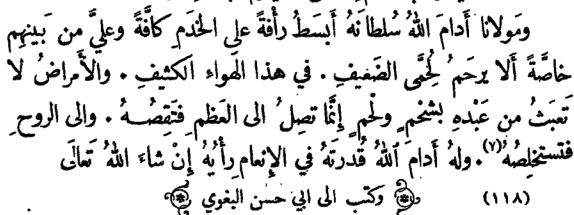 ومولانا أدامَ اللهُ سُلطانَهُ أبسَطُ رأفةً علي الخدَمِ كافَّةً وعليَّ من بَينِهِم
خاصَّةً ألا يرحَمُ لُحِمَّى الضَعيفِ ٠ في هذا الهواء الكثيفِ ٠ والأمراضُ لا
تَعبَثُ من عَبْدِهِ بشحْمٍ ولحْمٍ إنَّما تصِلُ الى العَظْمِ فتَقِصُـهُ ٠ والى الروحِ
فتستخلِصُهُ (٧). ولهُ أدامَ اللهُ قُدرتَهُ في الإنعامِ رأيُهُ إنْ شاءَ اللهُ تَعالَى
(١١٨) وكتب الى ابي حسن البغوي